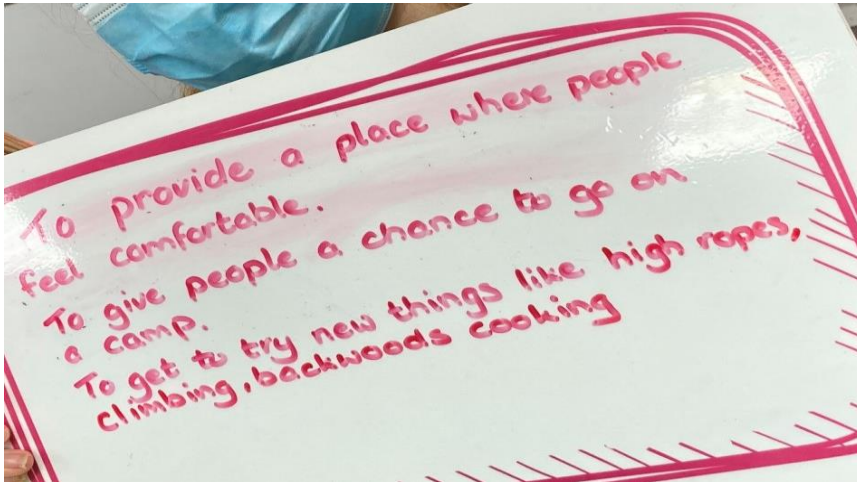 To provide a place where people
feel comfortable.
To give people a chance to go on
a camp.
To get to try new things like high ropes,
climbing, backwoods cooking